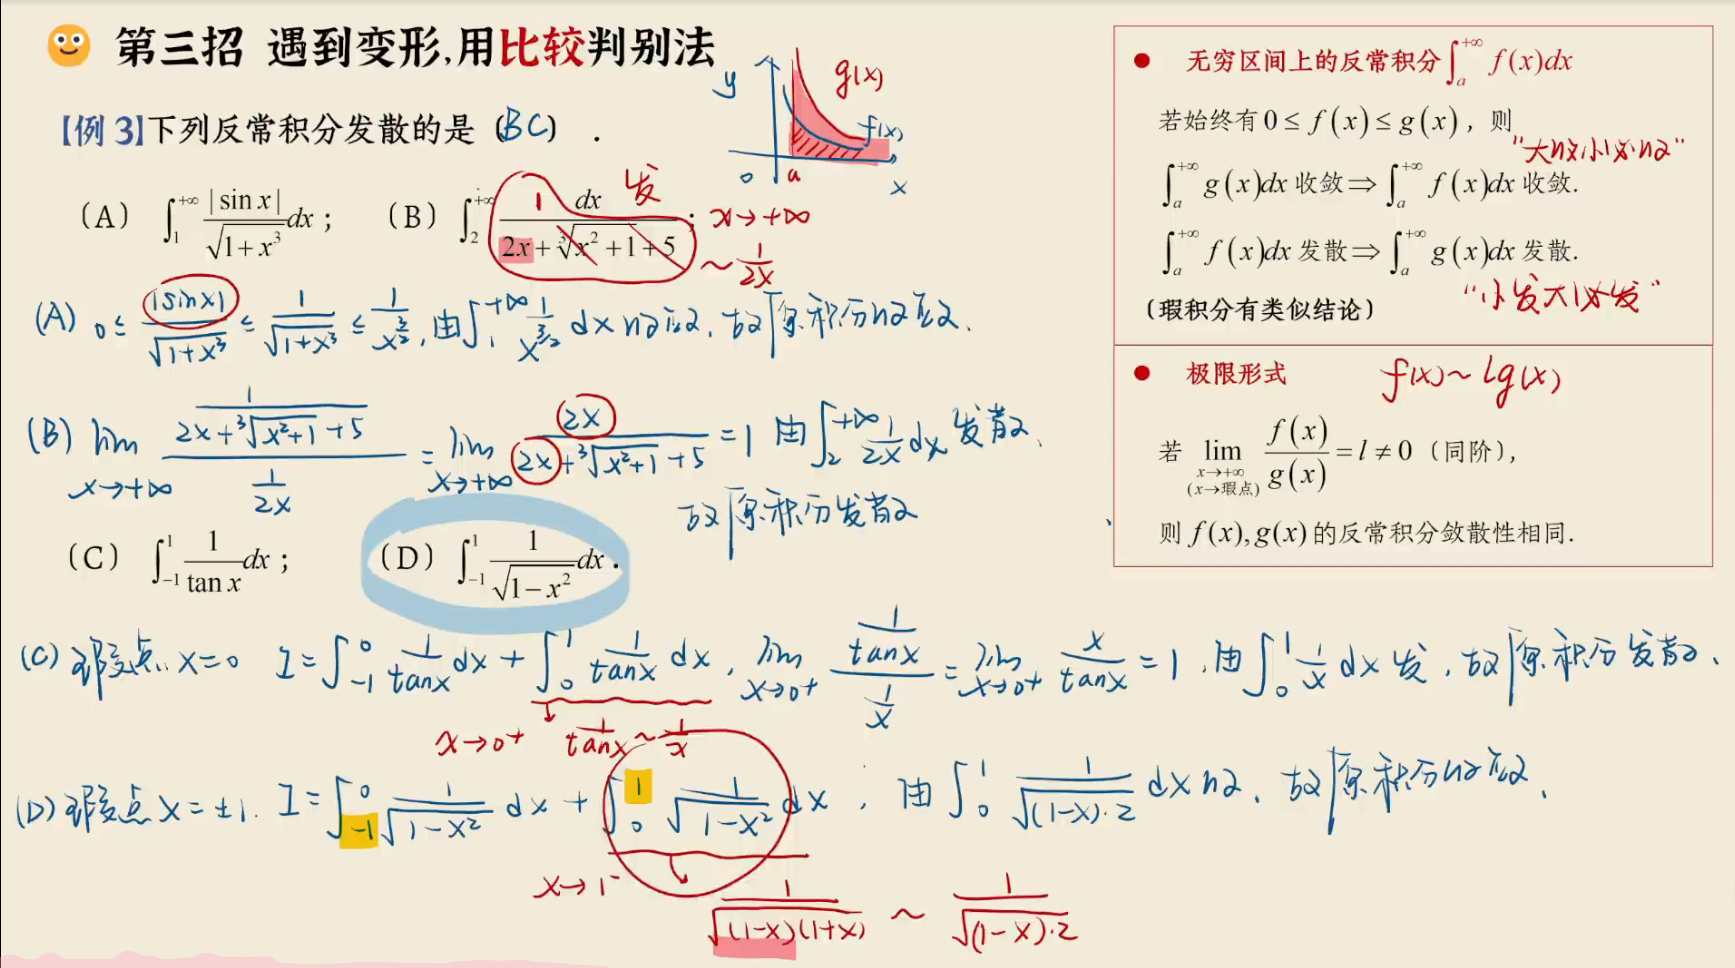 第三招 遇到变形,用比较判别法
【例 3】下列反常积分发散的是（BC）.
(A) ∫₁^{+∞} |sin x|/√(1+x³) dx ; (B) ∫₂^{+∞} 1 dx/(2x+∛(x²+1)+5) ; 发 x→+∞
~ 1/2x
y g(x) f(x) 0 a x
(A) 0≤ |sinx|/√(1+x³) ≤ 1/√(1+x³) ≤ 1/x^{3/2}, 由∫₁^{+∞} 1/x^{3/2} dx 收敛, 故原积分收敛.
(B) lim_{x→+∞} (1/(2x+∛(x²+1)+5))/(1/2x) = lim_{x→+∞} 2x/(2x+∛(x²+1)+5) = 1 由∫₂^{+∞} 1/2x dx 发散,
故原积分发散
(C) ∫₋₁¹ 1/tan x dx ; (D) ∫₋₁¹ 1/√(1−x²) dx .
(C) 瑕点 x=0 I=∫₋₁⁰ 1/tanx dx + ∫₀¹ 1/tanx dx, lim_{x→0+} (1/tanx)/(1/x) = lim_{x→0+} x/tanx = 1, 由∫₀¹ 1/x dx 发, 故原积分发散.
x→0⁺ 1/tanx ~ 1/x
(D) 瑕点 x=±1. I=∫₋₁⁰ 1/√(1−x²) dx + ∫₀¹ 1/√(1−x²) dx , 由∫₀¹ 1/√((1−x)·2) dx 收, 故原积分收敛.
x→1⁻
1/√((1−x)(1+x)) ~ 1/√((1−x)·2)
● 无穷区间上的反常积分∫ₐ^{+∞} f(x)dx
若始终有 0≤f(x)≤g(x), 则
"大收小必收"
∫ₐ^{+∞} g(x)dx 收敛⇒∫ₐ^{+∞} f(x)dx 收敛.
∫ₐ^{+∞} f(x)dx 发散⇒∫ₐ^{+∞} g(x)dx 发散.
"小发大必发"
(瑕积分有类似结论)
● 极限形式 f(x)~lg(x)
若 lim_{x→+∞ (x→瑕点)} f(x)/g(x) = l≠0（同阶）,
则 f(x),g(x)的反常积分敛散性相同.